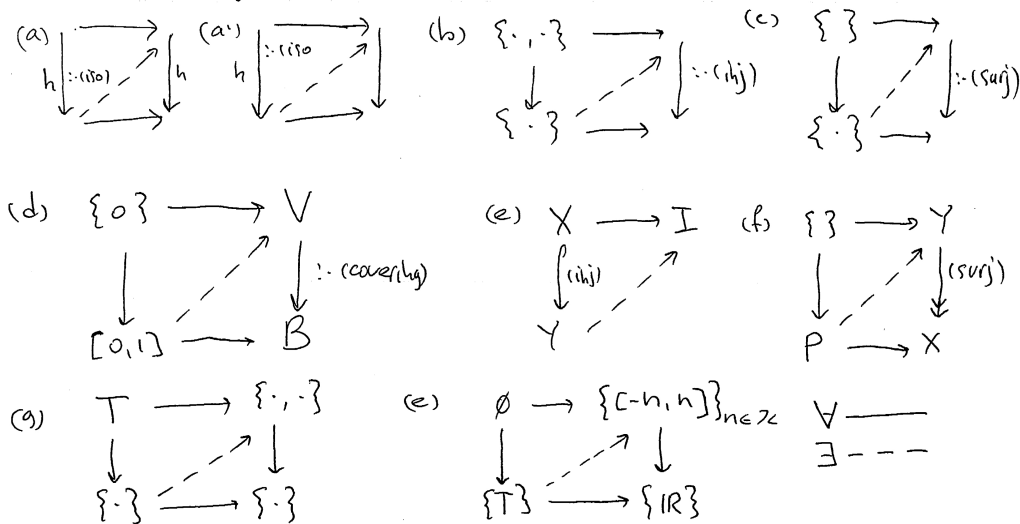 (a) h :-(iso) h (a') h :-(iso (b) {·,·} :-(inj) (c) { } :-(surj)
{·} {·}
(d) {0} V :-(covering) (e) X (inj) I (f) { } Y (surj)
[0,1] B Y P X
(g) T {·,·} (e) ∅ {[-n,n]}n∈ℤ ∀
{·} {·} {T} {IR} ∃